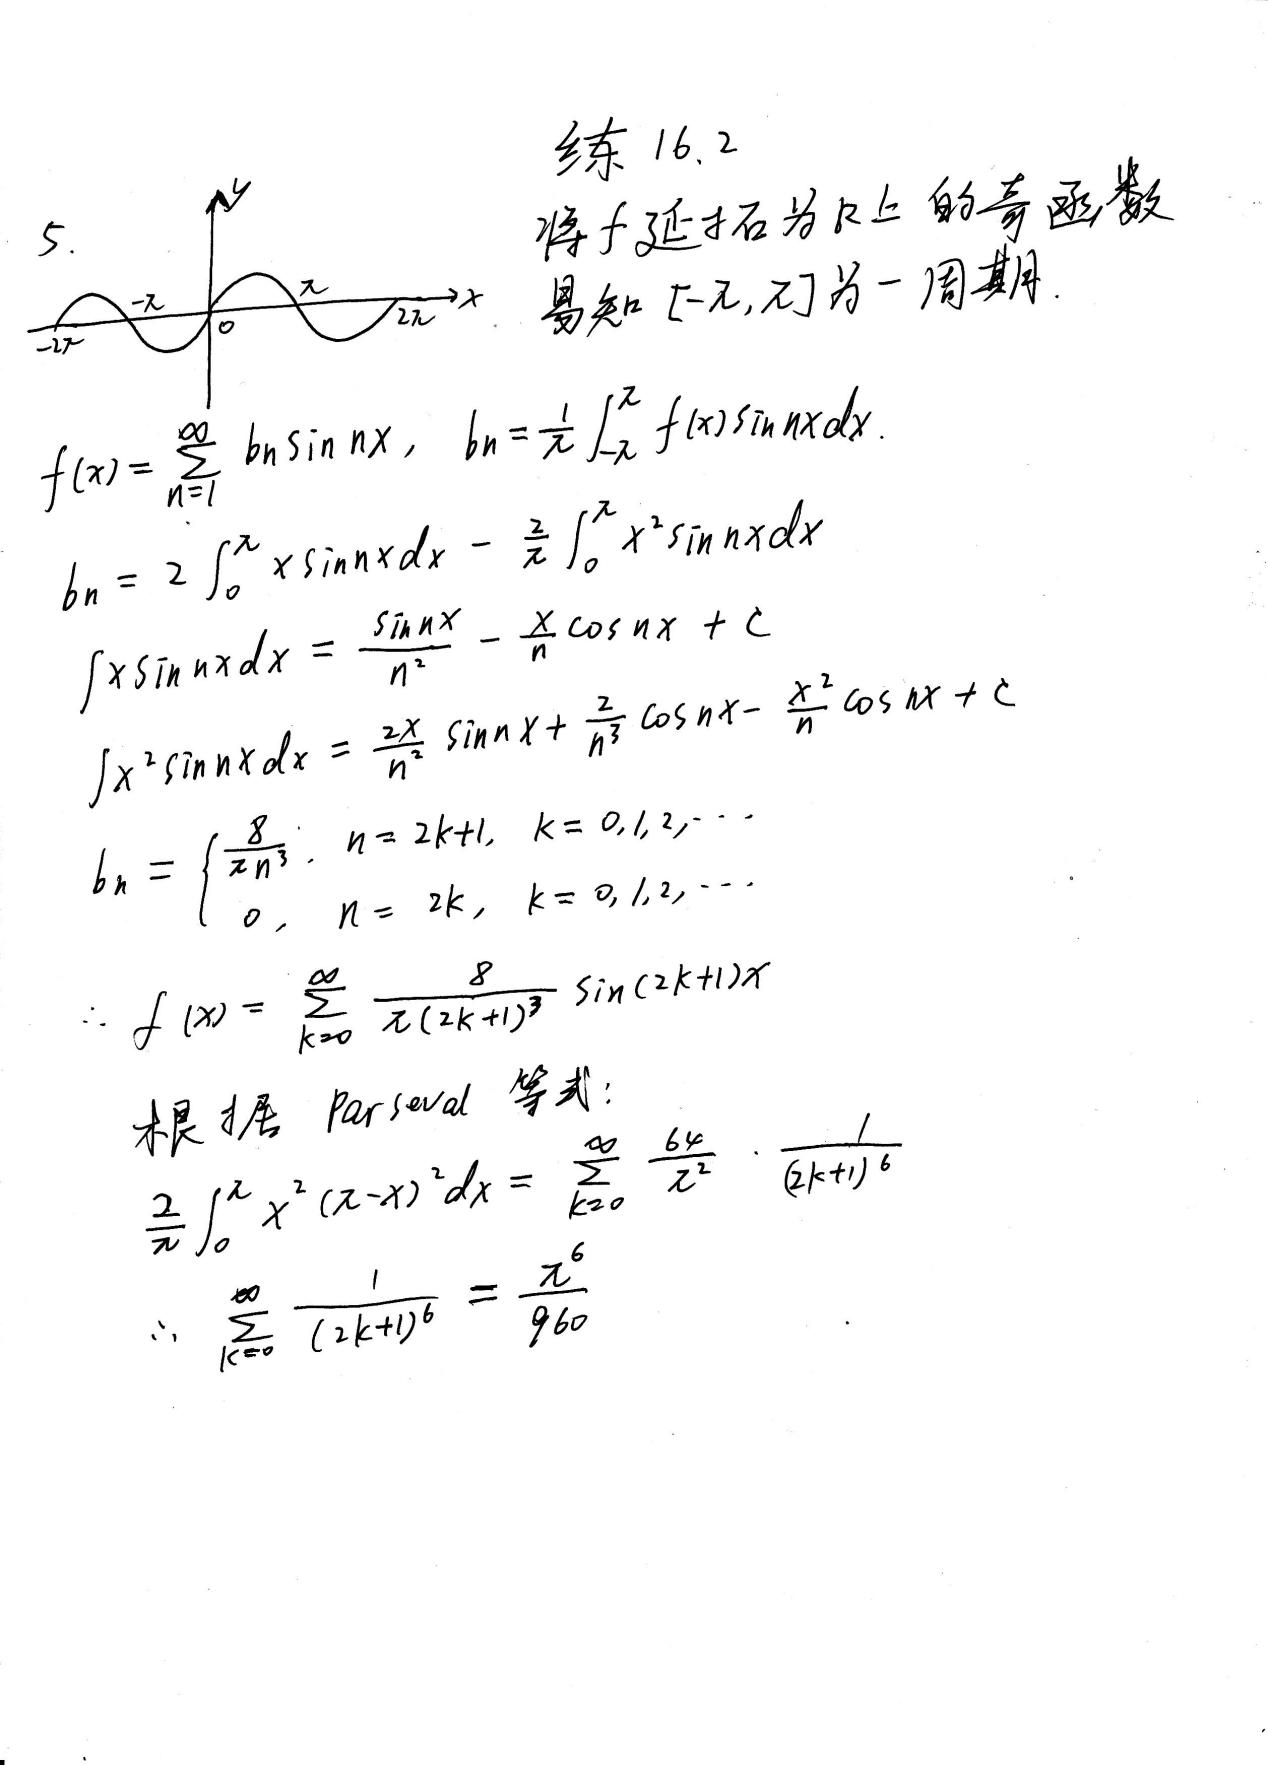 练 16.2
5.
将 f 延拓为 R 上 的奇函数
易知 [-π, π] 为一周期.
y
-π
π
x
-2π
0
2π
f(x) = ∑_{n=1}^{∞} bn sin nx, bn = 1/π ∫_{-π}^{π} f(x) sin nx dx.
bn = 2 ∫_0^π x sin nx dx - 2/π ∫_0^π x² sin nx dx
∫x sin nx dx = sin nx/n² - x/n cos nx + C
∫x² sin nx dx = 2x/n² sin nx + 2/n³ cos nx - x²/n cos nx + C
bn = { 8/(πn³), n = 2k+1, k = 0,1,2,...
0, n = 2k, k = 0,1,2,...
∴ f(x) = ∑_{k=0}^{∞} 8/(π(2k+1)³) sin(2k+1)x
根据 Parseval 等式:
2/π ∫_0^π x²(π-x)² dx = ∑_{k=0}^{∞} 64/π² · 1/(2k+1)⁶
∴ ∑_{k=0}^{∞} 1/(2k+1)⁶ = π⁶/960